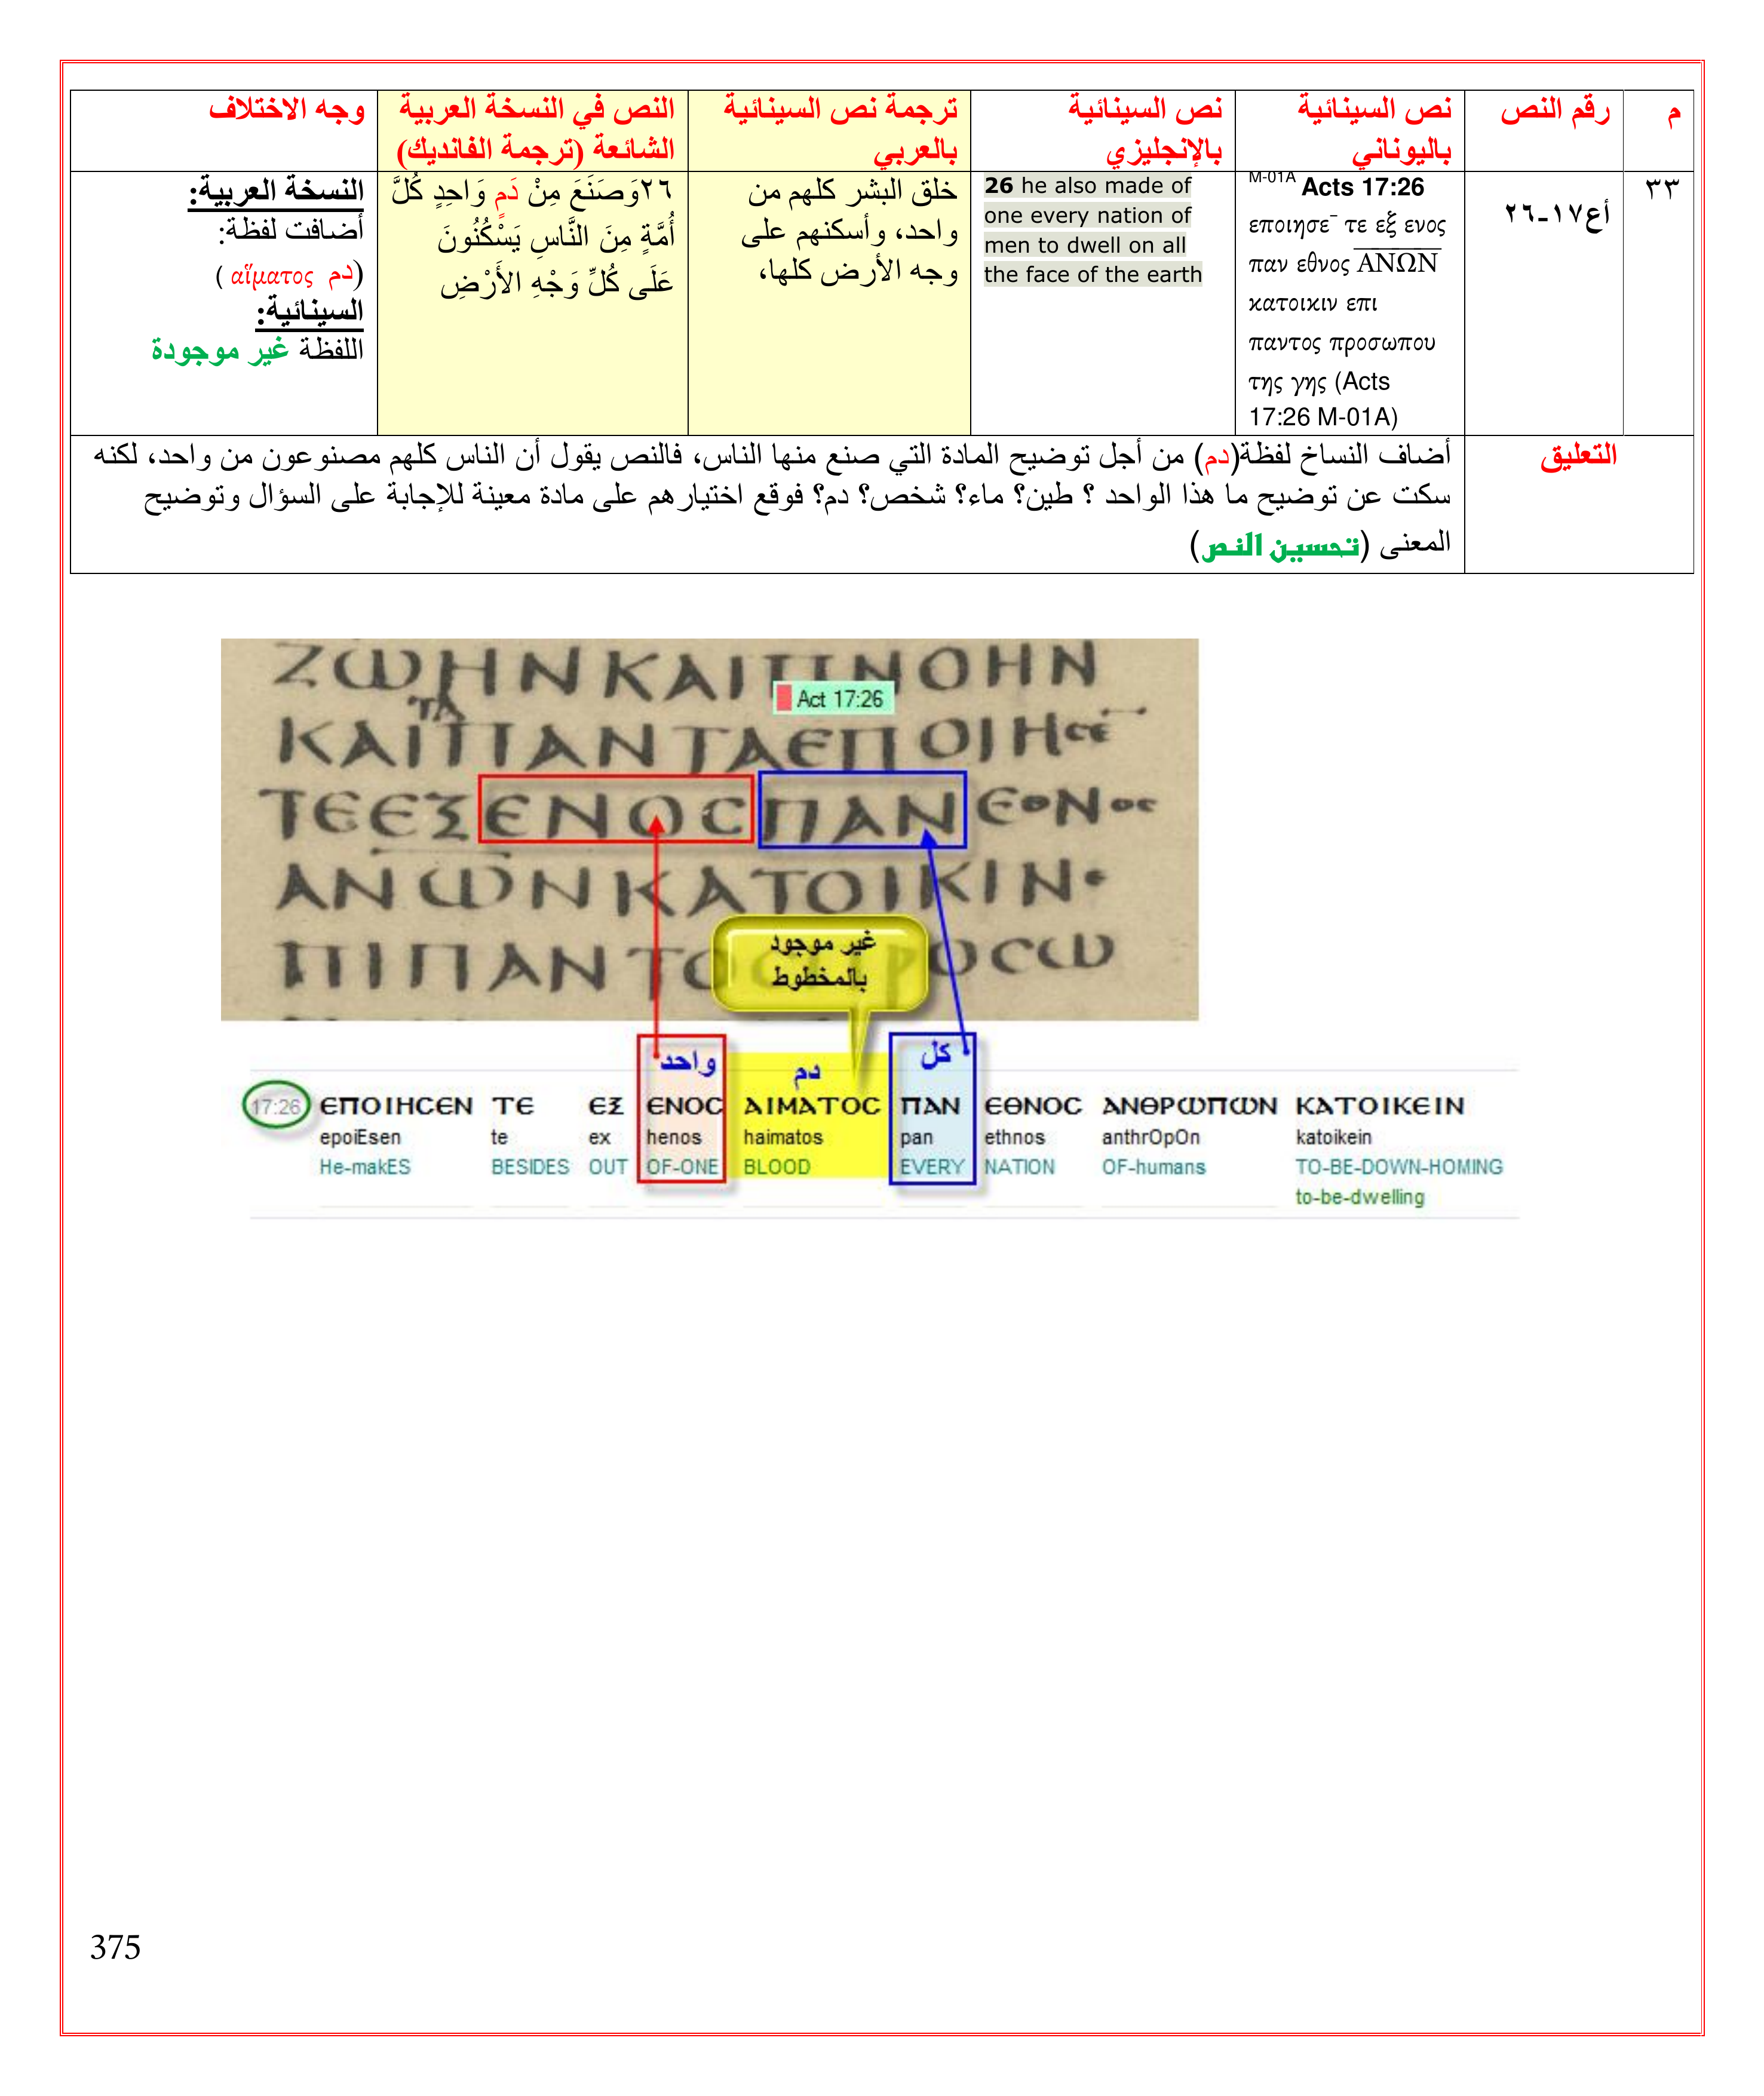 م
رقم النص
نص السينائية
باليوناني
نص السينائية
بالإنجليزي
ترجمة نص السينائية
بالعربي
النص في النسخة العربية
الشائعة (ترجمة الفانديك)
وجه الاختلاف
٣٣
أع١٧-٢٦
M-01A Acts 17:26
εποιησε‾ τε εξ ενος
παν εθνος ΑΝΩΝ
κατοικιν επι
παντος προσωπου
της γης (Acts
17:26 M-01A)
26 he also made of
one every nation of
men to dwell on all
the face of the earth
خلق البشر كلهم من
واحد، وأسكنهم على
وجه الأرض كلها،
٢٦وَصَنَعَ مِنْ دَمٍ وَاحِدٍ كُلَّ
أُمَّةٍ مِنَ النَّاسِ يَسْكُنُونَ
عَلَى كُلِّ وَجْهِ الأَرْضِ
النسخة العربية:
أضافت لفظة:
(دم αἵματος )
السينائية:
اللفظة غير موجودة
التعليق
أضاف النساخ لفظة(دم) من أجل توضيح المادة التي صنع منها الناس، فالنص يقول أن الناس كلهم مصنوعون من واحد، لكنه
سكت عن توضيح ما هذا الواحد ؟ طين؟ ماء؟ شخص؟ دم؟ فوقع اختيارهم على مادة معينة للإجابة على السؤال وتوضيح
المعنى (تحسين النص)
ΖΩΗΝΚΑΙΠΝΟΗΝ
Act 17:26
ΤΑ
ΚΑΙΠΑΝΤΑΕΠΟΙΗϹΕ
ΤΕΕΞΕΝΟϹΠΑΝΕΘΝΟϹ
ΑΝΩΝΚΑΤΟΙΚΙΝ·
ΠΙΠΑΝΤΟ ΡΟϹΩ
غير موجود
بالمخطوط
واحد
دم
كل
17:26 ΕΠΟΙΗϹΕΝ ΤΕ ΕΞ ΕΝΟϹ ΑΙΜΑΤΟϹ ΠΑΝ ΕΘΝΟϹ ΑΝΘΡΩΠΩΝ ΚΑΤΟΙΚΕΙΝ
epoiEsen te ex henos haimatos pan ethnos anthrOpOn katoikein
He-makES BESIDES OUT OF-ONE BLOOD EVERY NATION OF-humans TO-BE-DOWN-HOMING
to-be-dwelling
375